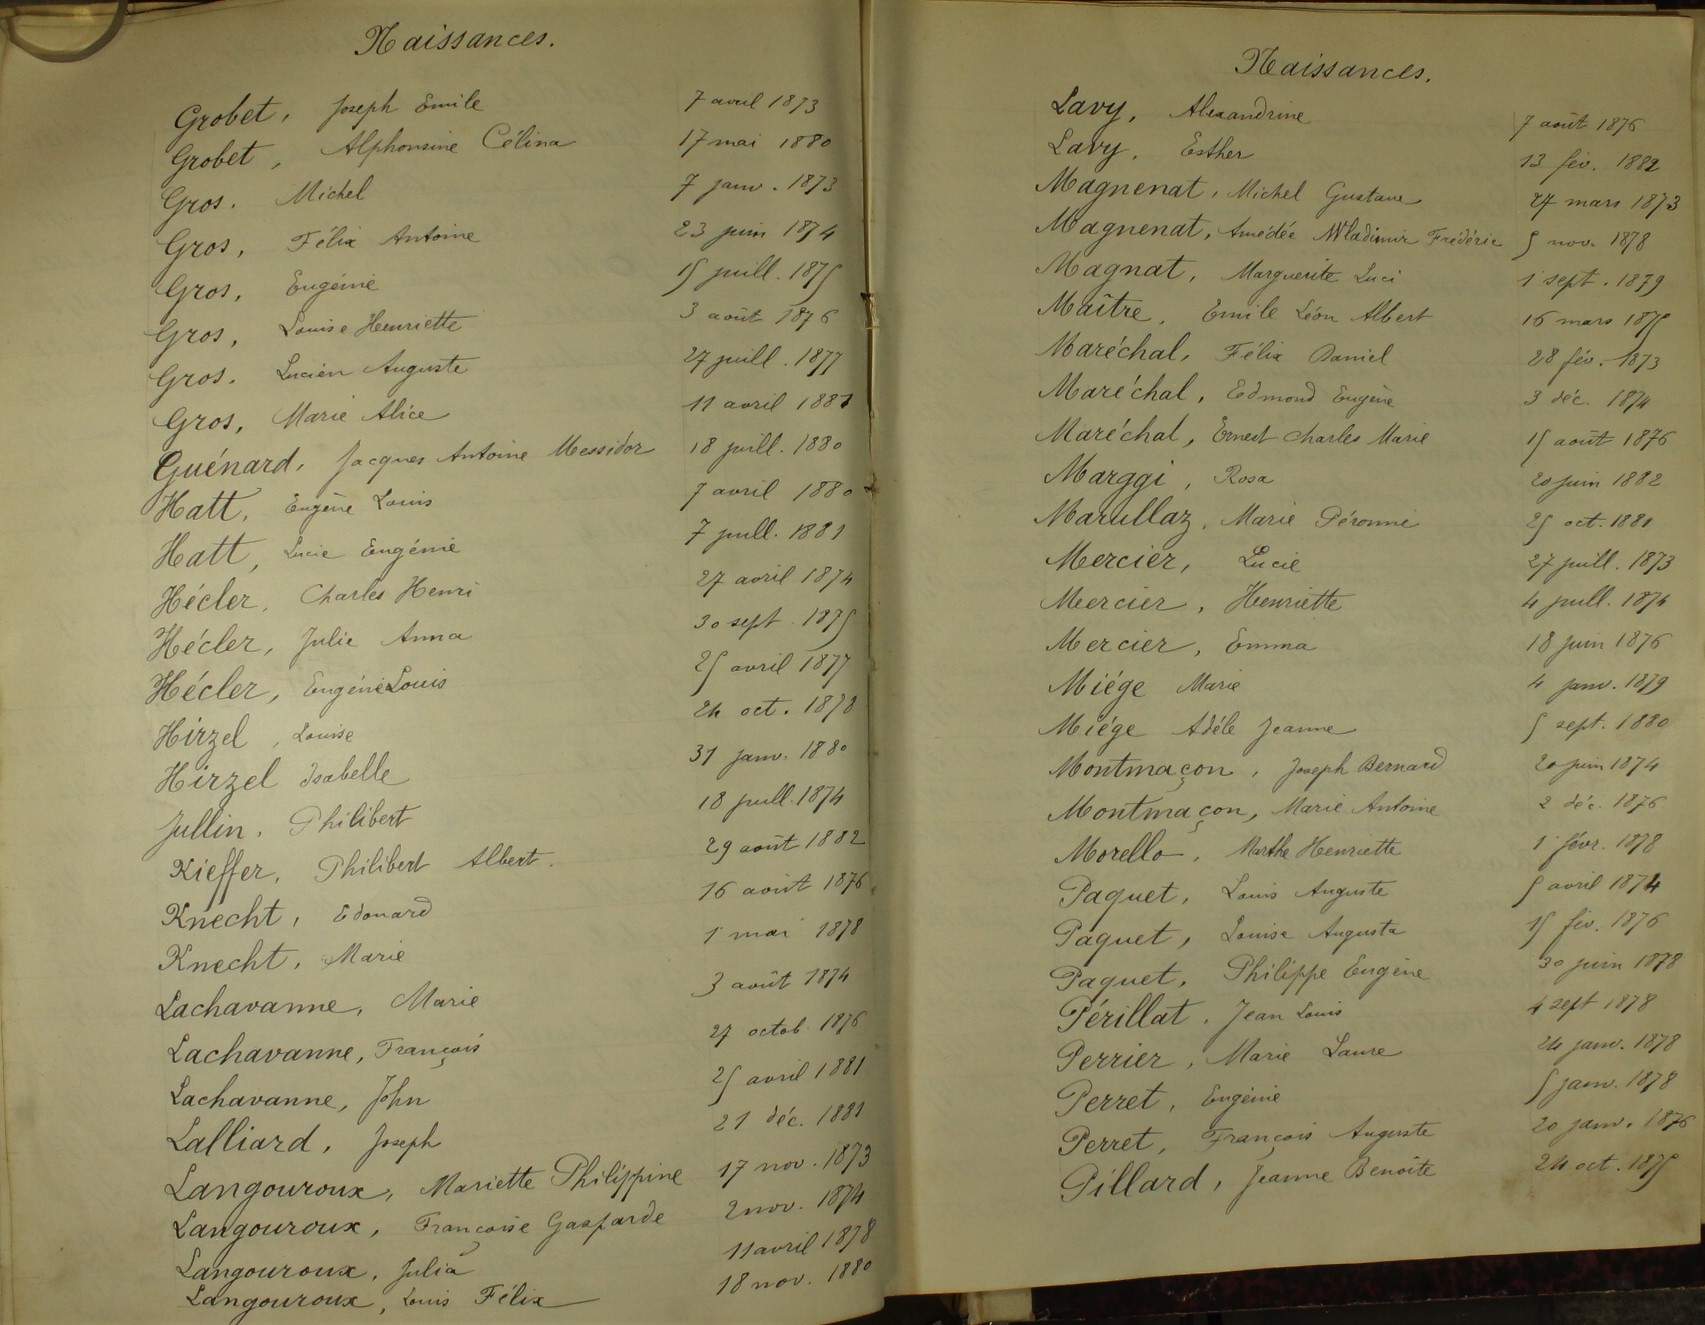 Naissances.
Grobet, Joseph Emile 7 avril 1873
Grobet, Alphonsine Célina 17 mai 1880
Gros. Michel 7 janv. 1873
Gros, Félix Antoine 23 juin 1874
Gros, Eugénie 15 juill. 1875
Gros, Louise Henriette 3 août 1876
Gros. Lucien Auguste 27 juill. 1877
Gros, Marie Alice 11 avril 1881
Guénard, Jacques Antoine Messidor 18 juill. 1880
Hatt, Eugène Louis 7 avril 1880
Hatt, Lucie Eugénie 7 juill. 1881
Hécler, Charles Henri 27 avril 1874
Hécler, Julie Anna 30 sept. 1875
Hécler, Eugénie Louis 25 avril 1877
Hirzel, Louise 24 oct. 1878
Hirzel Isabelle 31 janv. 1880
Jullin. Philibert 18 juill. 1874
Kieffer, Philibert Albert. 29 août 1882
Knecht, Edouard 16 août 1876
Knecht, Marie 1 mai 1878
Lachavanne, Marie 3 août 1874
Lachavanne, François 27 octob. 1876
Lachavanne, John 25 avril 1881
Lalliard, Joseph 21 déc. 1881
Langouroux, Mariette Philippine 17 nov. 1873
Langouroux, Françoise Gasparde 2 nov. 1874
Langouroux, Julia 11 avril 1878
Langouroux, Louis Félix 18 nov. 1880
Naissances.
Lavy, Alexandrine 7 août 1876
Lavy, Esther 13 fév. 1882
Magnenat, Michel Gustave 27 mars 1873
Magnenat, Amédée Wladimir Frédéric 5 nov. 1878
Magnat, Marguerite Luci 1 sept. 1879
Maître, Emile Léon Albert 16 mars 1875
Maréchal, Félix Daniel 28 fév. 1873
Maréchal, Edmond Eugène 3 déc. 1874
Maréchal, Ernest Charles Marie 15 août 1876
Marggi, Rosa 20 juin 1882
Marullaz, Marie Péronne 25 oct. 1881
Mercier, Lucie 27 juill. 1873
Mercier, Henriette 4 juill. 1874
Mercier, Emma 18 juin 1876
Miége Marie 4 janv. 1879
Miége Adéle Jeanne 5 sept. 1880
Montmaçon, Joseph Bernard 20 juin 1874
Montmaçon, Marie Antoine 2 déc. 1876
Morello, Marthe Henriette 1 févr. 1878
Paquet, Louis Auguste 5 avril 1874
Paquet, Louise Augusta 15 fév. 1876
Paquet, Philippe Eugène 30 juin 1878
Périllat, Jean Louis 4 sept 1878
Perrier, Marie Laure 24 janv. 1878
Perret, Eugénie 5 janv. 1878
Perret, François Auguste 20 janv. 1876
Pillard, Jeanne Benoite 24 oct. 1875